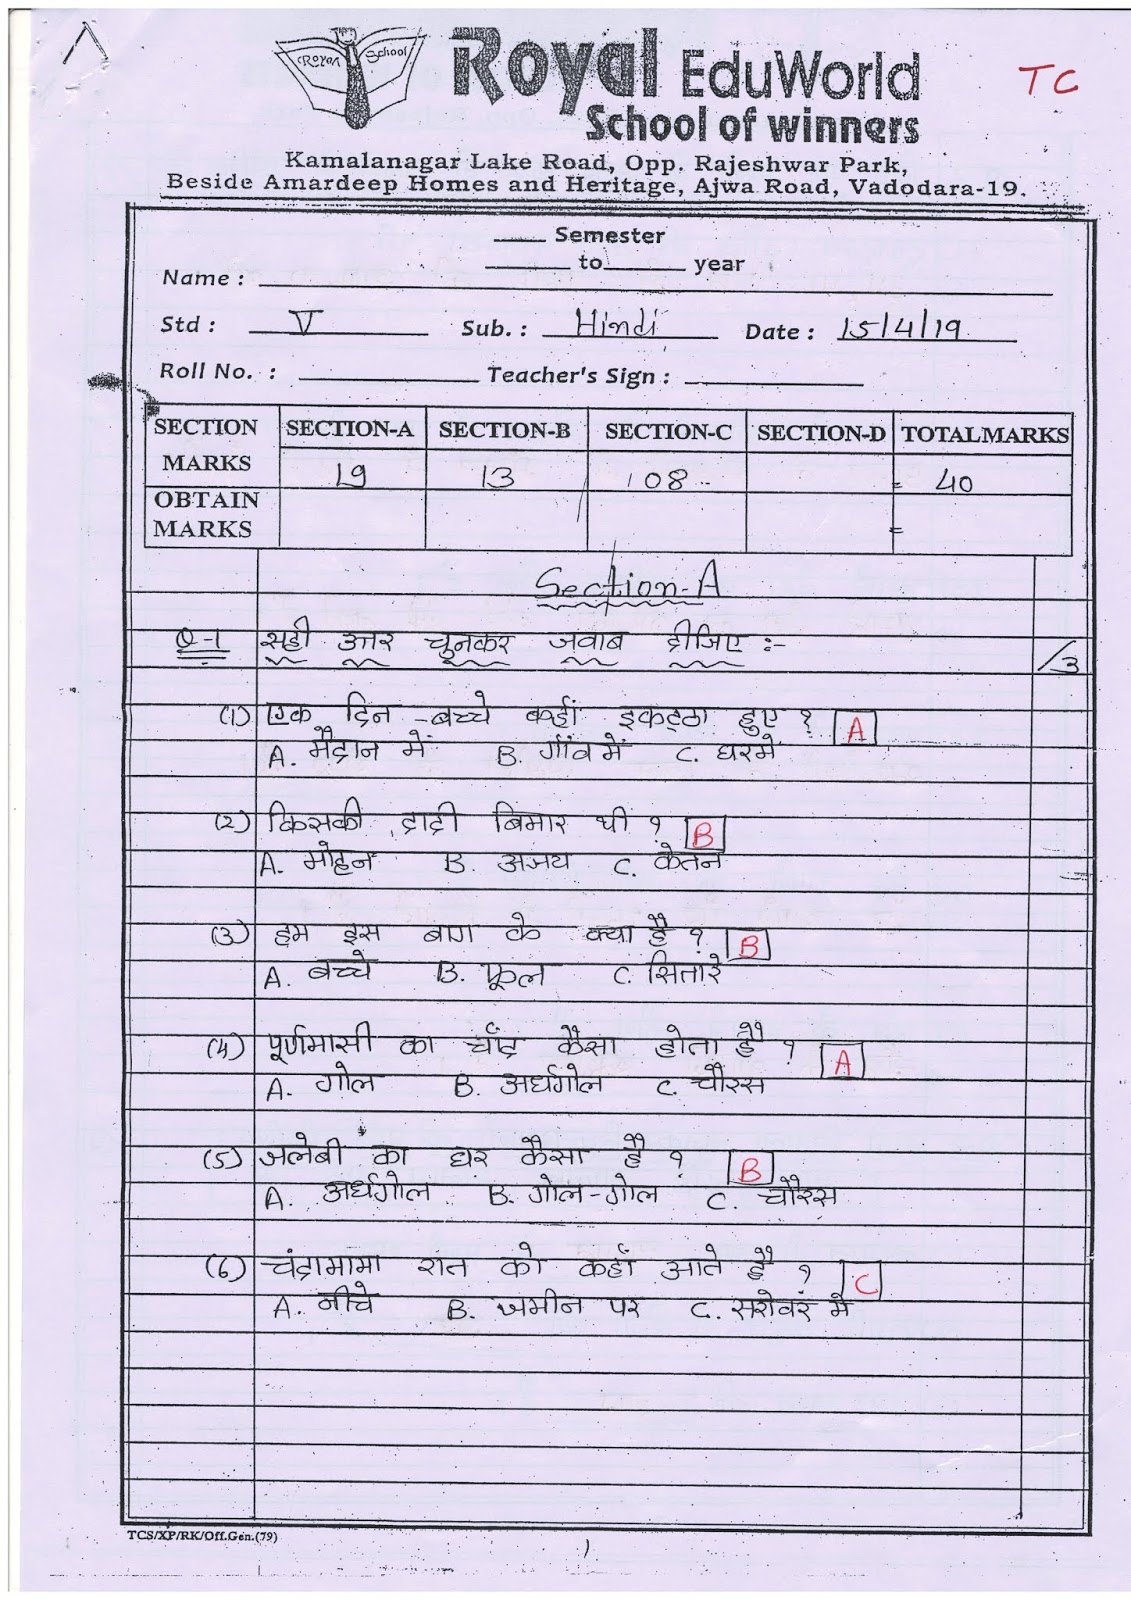 Royal School
Royal EduWorld
TC
School of winners
Kamalanagar Lake Road, Opp. Rajeshwar Park,
Beside Amardeep Homes and Heritage, Ajwa Road, Vadodara-19.
____ Semester
______ to ______ year
Name :
Std : V Sub. : Hindi Date : 15/4/19
Roll No. : Teacher's Sign :
SECTION MARKS SECTION-A SECTION-B SECTION-C SECTION-D TOTALMARKS
19 13 08 = 40
OBTAIN MARKS =
Section-A
Q-1 सही उत्तर चुनकर जवाब दीजिए :- /3
(1) एक दिन बच्चे कहाँ इकट्ठा हुए ? A
A. मैदान में B. गाँव में C. घरमें
(2) किसकी दादी बिमार थी ? B
A. मोहन B. अजय C. केतन
(3) हम इस बाग के क्या है ? B
A. बच्चे B. फूल C. सितारे
(4) पूर्णमासी का चाँद कैसा होता है ? A
A. गोल B. अर्धगोल C. चौरस
(5) जलेबी का घर कैसा है ? B
A. अर्धगोल B. गोल-गोल C. चौरस
(6) चंद्रामामा रात को कहाँ आते है ? C
A. नीचे B. जमीन पर C. सरोवर में
TCS/XP/RK/Off.Gen.(79)
1